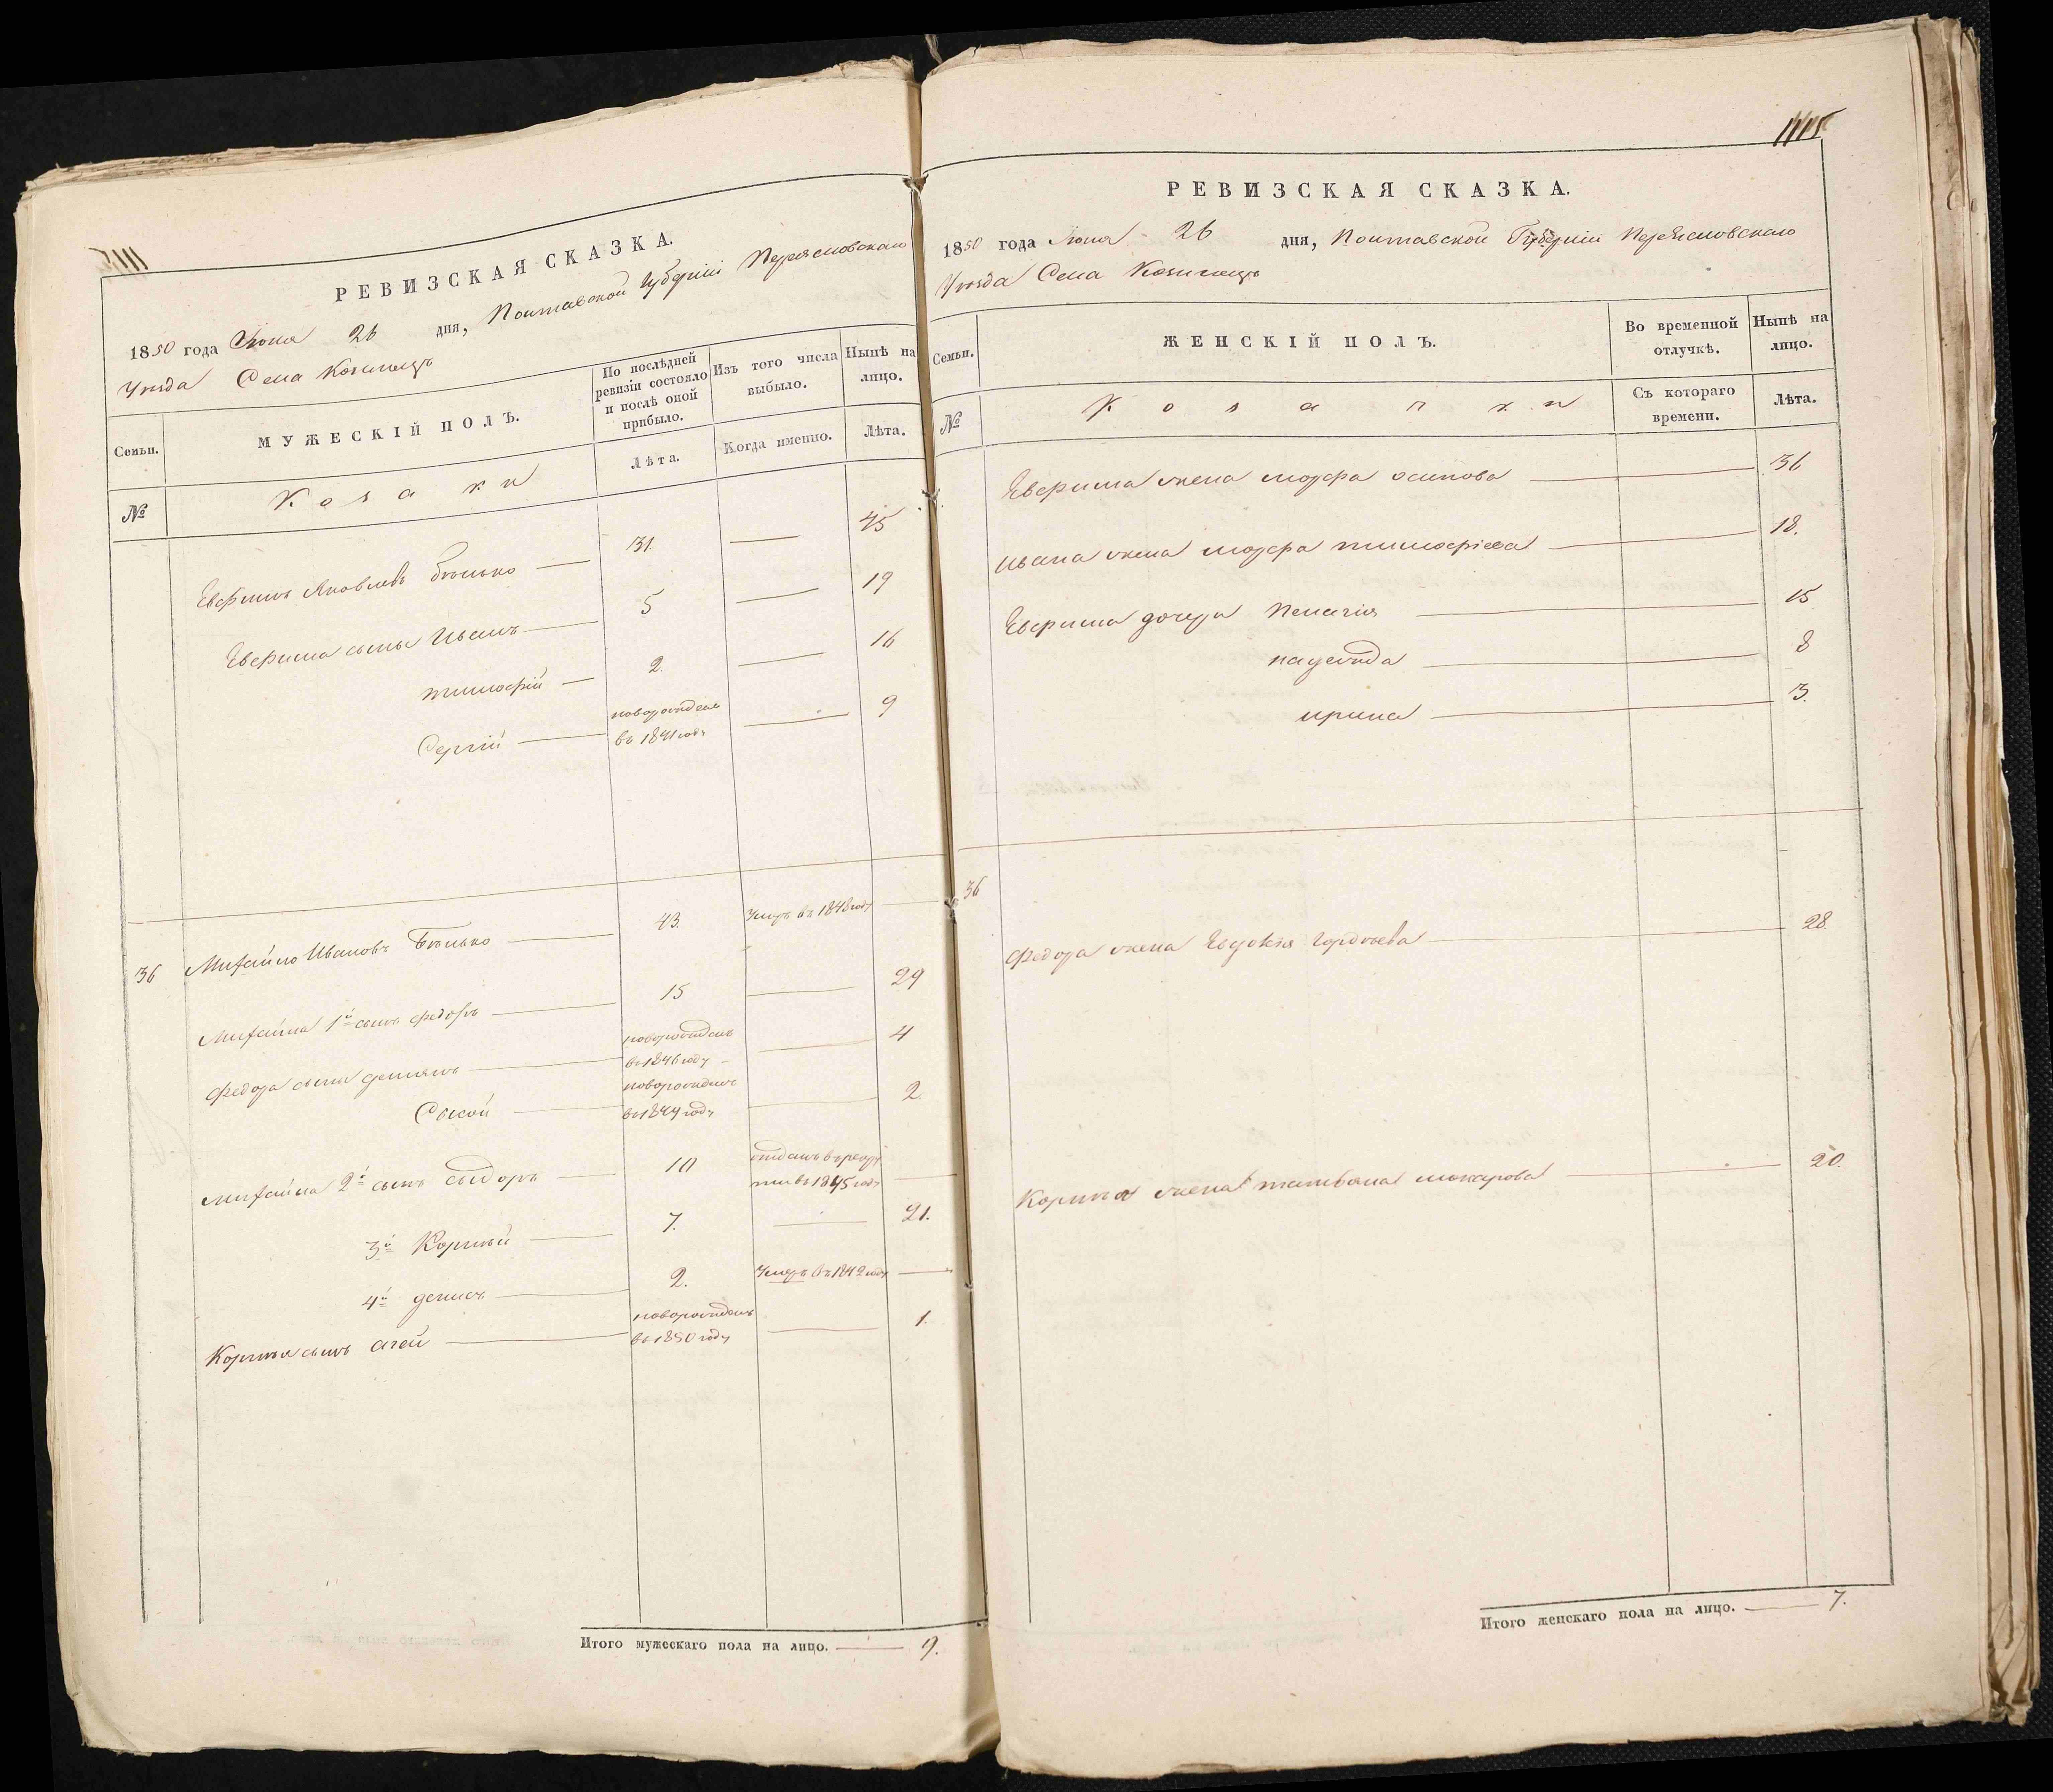 РЕВИЗСКАЯ СКАЗКА.
1850 года Июня 26 дня, Полтавской Губерніи Переясловскаго
Уезда Села Козинецъ
Семьи.
МУЖЕСКІЙ ПОЛЪ.
По послѣдней ревизіи состояло и послѣ оной прибыло.
Изъ того числа выбыло.
Нынѣ на лицо.
№
Козаки
Лѣта.
Когда именно.
Лѣта.
Евфимъ Яковлевъ Бѣлько 31. 45
Евфима сыны Иванъ 5 19
тимофій 2. 16
Сергій новорожденъ в 1841 году 9
36 Михайло Ивановъ Бѣлько 43. Умеръ въ 1848 году
Михайла 1й сынъ федоръ 15 29
федора сыны демянъ новорожденъ в 1846 году 4
Сысой новорожденъ в 1849 году 2.
Михайла 2й сынъ сыдоръ 10 отданъ въ рекруты в 1845 году
3й Корнѣй 7. 21.
4й денисъ 2. Умеръ въ 1842 году
Корнѣя сынъ агей новорожденъ в 1850 году 1.
Итого мужескаго пола на лицо. 9.
1115
РЕВИЗСКАЯ СКАЗКА.
1850 года Июня 26 дня, Полтавской Губерніи Переясловскаго
Уезда Села Козинецъ
Семьи.
ЖЕНСКІЙ ПОЛЪ.
Во временной отлучкѣ.
Нынѣ на лицо.
№
Козачки
Съ котораго времени.
Лѣта.
Евфима жена марфа осипова 36
Ивана жена марфа тимофіева 18.
Евфима дочери Пелагія 15
надежда 8
ирина 3.
36
федора жена Евдокія гордѣева 28.
Корнѣя жена татьяна макарова 20.
Итого женскаго пола на лицо. 7.